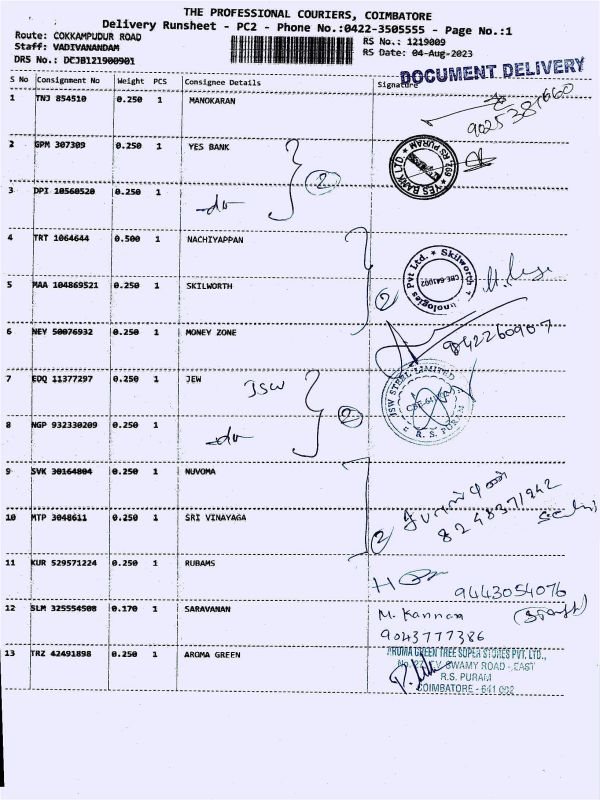 THE PROFESSIONAL COURIERS, COIMBATORE
Delivery Runsheet - PC2 - Phone No.:0422-3505555 - Page No.:1
Route: COKKAMPUDUR ROAD
RS No.: 1219009
Staff: VADIVANANDAM
RS Date: 04-Aug-2023
DRS No.: DCJB121900901
DOCUMENT DELIVERY
S No Consignment No Weight PCS Consignee Details Signature
1 TNJ 854510 0.250 1 MANOKARAN
9025381660
2 GPM 307309 0.250 1 YES BANK
YES BANK LTD. * RS PURAM
2
3 DPI 10560520 0.250 1
-do-
4 TRT 1064644 0.500 1 NACHIYAPPAN
Skilworth
nologies Pvt Ltd. *
CBE-641002
5 MAA 104869521 0.250 1 SKILWORTH
2
6 NEY 50076932 0.250 1 MONEY ZONE
7 EDQ 11377297 0.250 1 JEW
JSW
JSW STEEL LIMITED
R. S. PURAM
8 NGP 932330209 0.250 1
-do-
2
9 SVK 30164804 0.250 1 NUVOMA
10 MTP 3048611 0.250 1 SRI VINAYAGA
2
8248371242
11 KUR 529571224 0.250 1 RUBAMS
9443054076
12 SLM 325554508 0.170 1 SARAVANAN
M. Kannan
9043777386
13 TRZ 42491898 0.250 1 AROMA GREEN
AROMA GREEN TREE SUPER STORES PVT. LTD.,
SWAMY ROAD - EAST
R.S. PURAM
COIMBATORE - 641 002